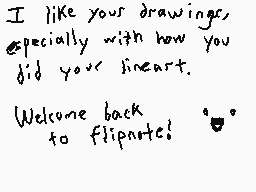 I like your drawings,
especially with how you
did your lineart.
Welcome back
to flipnote!